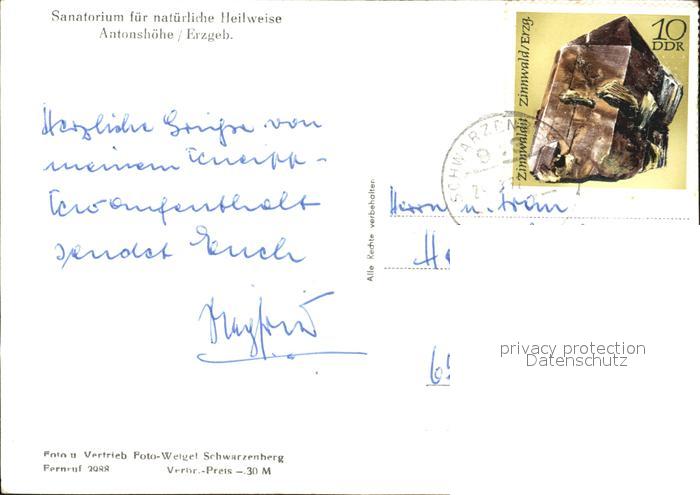 Sanatorium für natürliche Heilweise
Antonshöhe / Erzgeb.
Herzliche Grüße von
meinem Kneipp-
Kuraufenthalt
sendet Euch
Siegfried
Foto u. Vertrieb Foto-Weigel Schwarzenberg
Fernruf 2988 Verbr.-Preis —.30 M
Alle Rechte verbehalten
10
DDR
Zinnwaldit Zinnwald/Erzg.
SCHWARZEN
Herrn u. Frau
privacy protection
Datenschutz